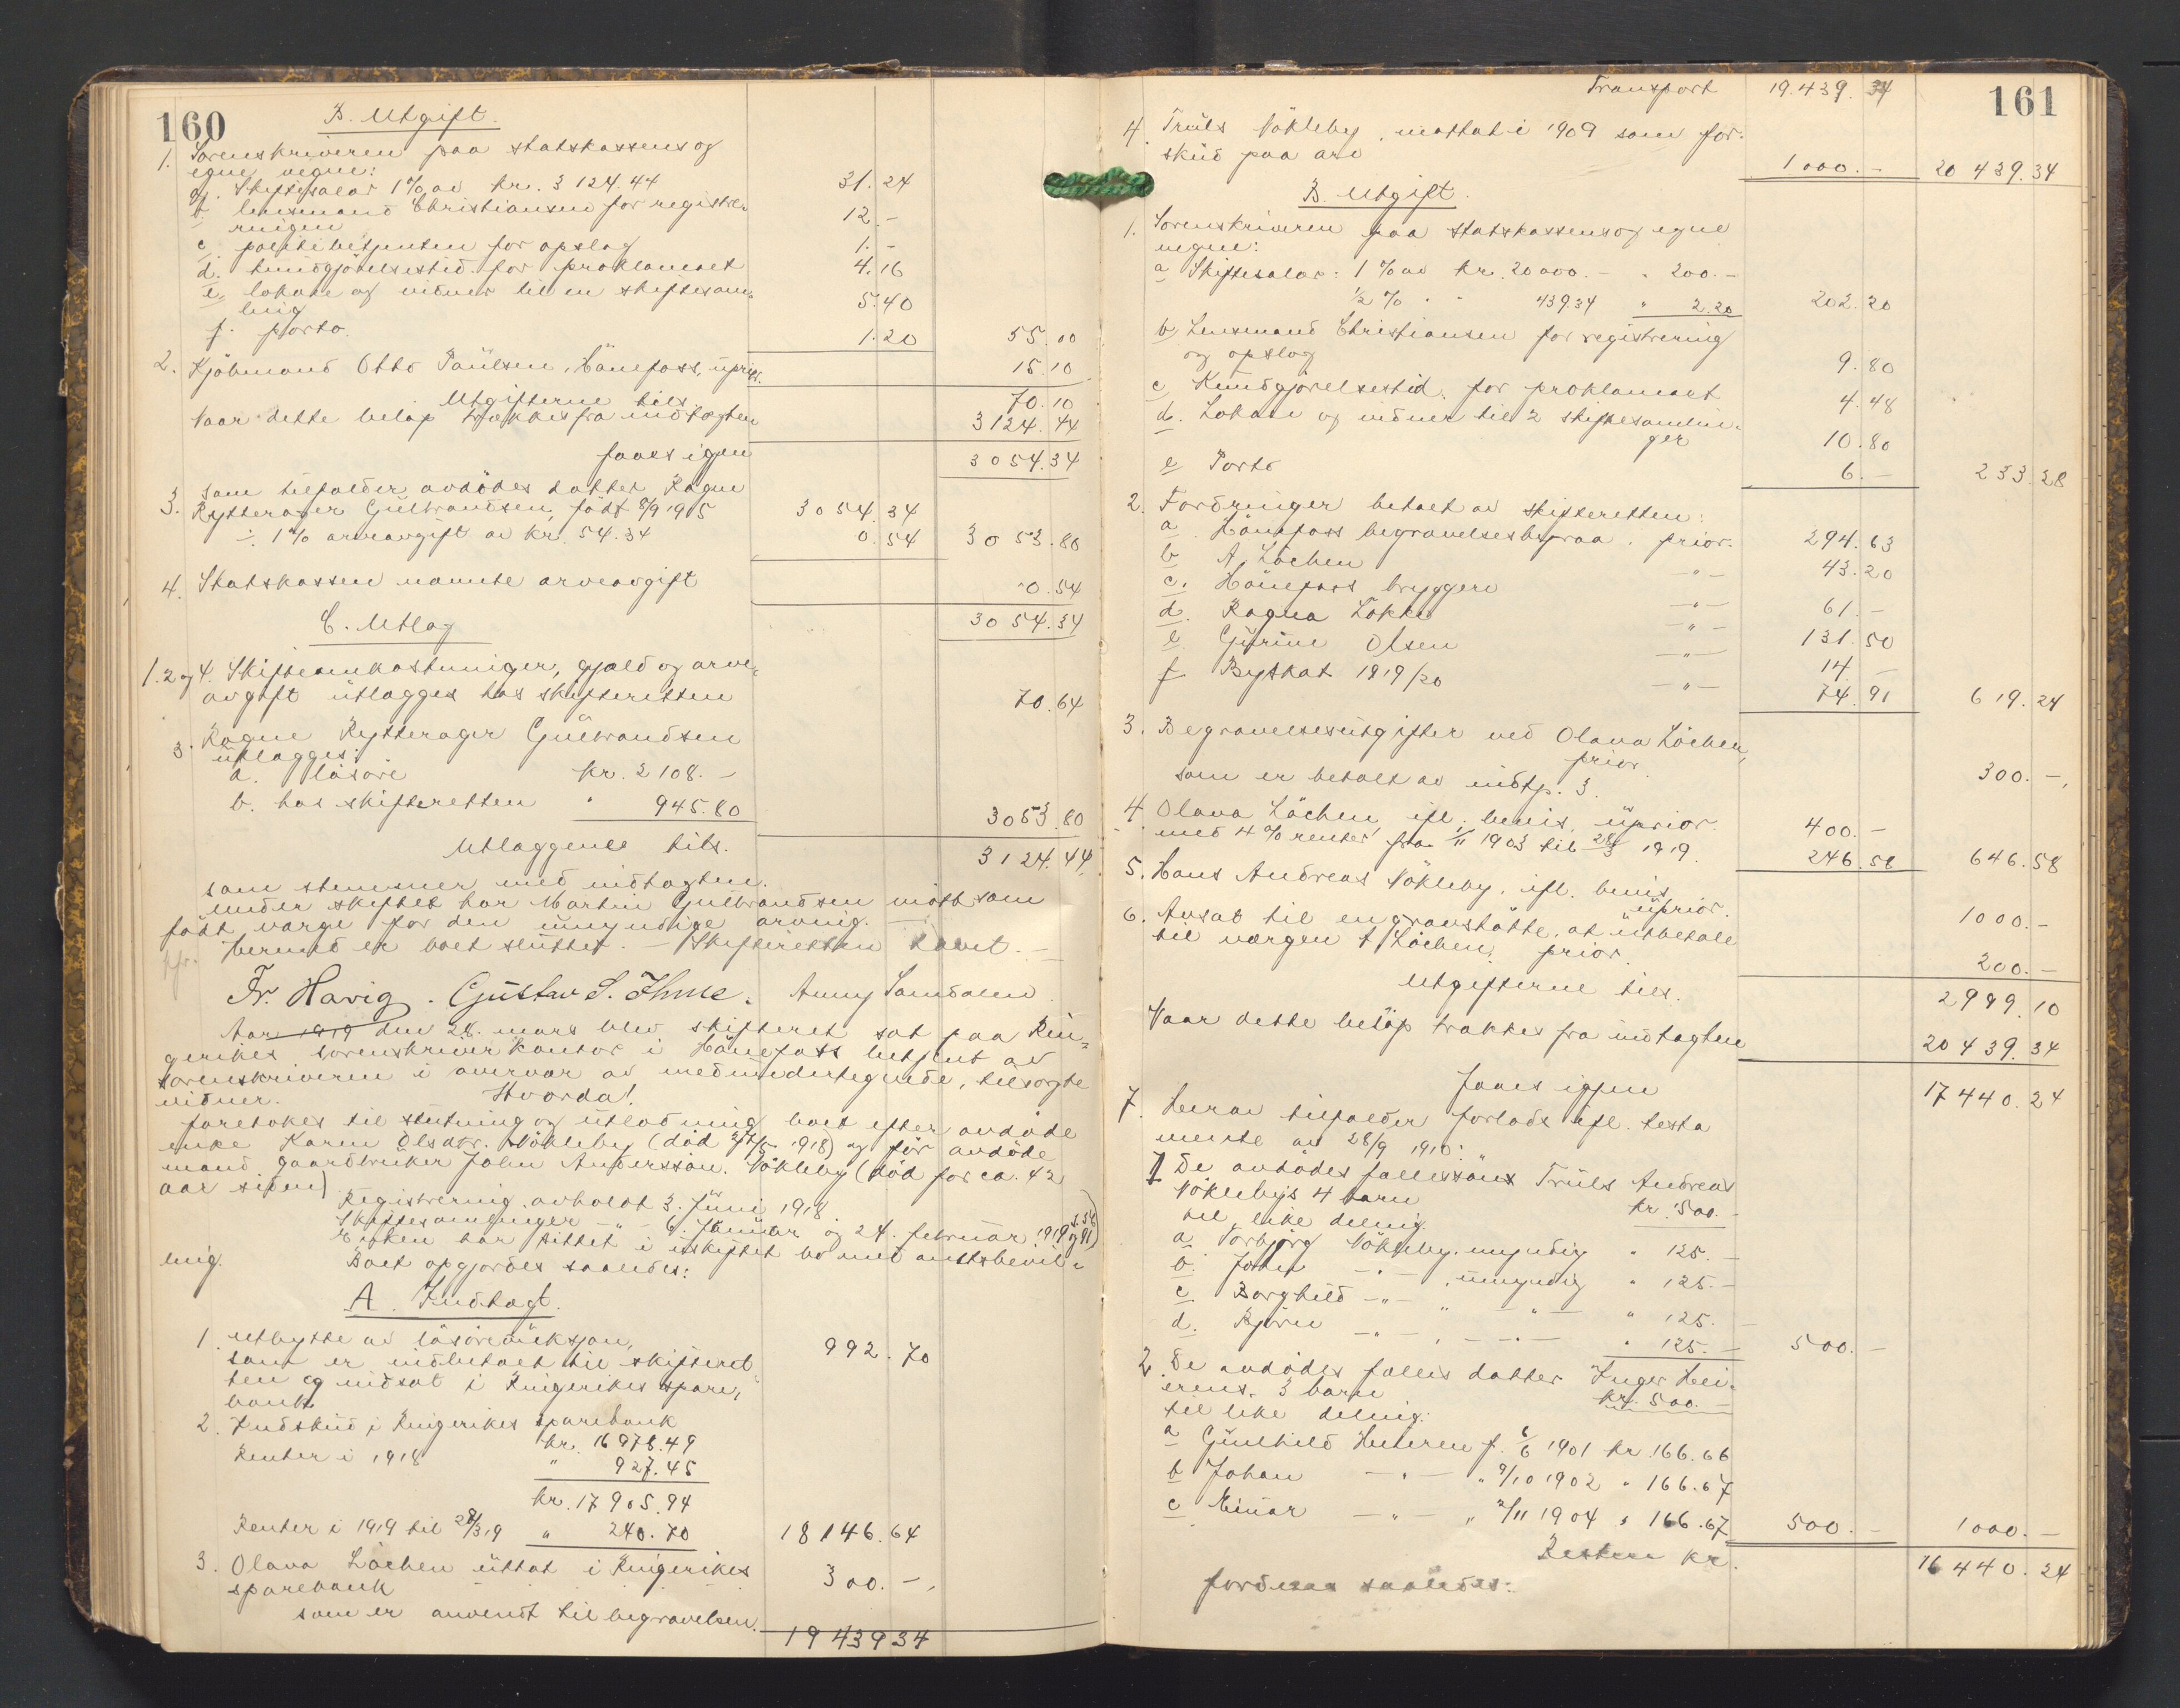 160
B. Utgift.
1. Sorenskriveren paa statskassens og
egne vegne:
a. Skiftesalar 1% av kr. 3124.44 31.24
b. lensmand Christiansen for registre-
ringen 12.-
c. politibetjenten for opslag 1.-
d. kundgjörelsestid. for proklamaet 4.16
e. lokale og vidner til en skiftesam-
ling 5.40
f. porto. 1.20 55.00
2. Kjöbmand Otto Paulsen, Hönefoss, uprior. 15.10
Utgifterne tils. 70.10
Naar dette belöp trækkes fra indtægten 3124.44
faaes igjen 3054.34
som tilfalder avdödes datter Ragne
3. Rytterager Gulbrandsen, födt 8/9 1915 3054.34
÷ 1% arveavgift av kr. 54.34 0.54 3053.80
4. Statskassen nævnte arveavgift 0.54
3054.34
C. Utlæg
1. 2 og 4. Skifteomkostninger, gjæld og arve-
avgift utlægges hos skifteretten 70.64
3. Ragne Rytterager Gulbrandsen
utlægges:
a. lösöre kr. 2108.-
b. hos skifteretten " 945.80 3053.80
Utlæggende tils. 3124.44
som stemmer med indtægten.
Under skiftet har Martin Gulbrandsen mött som
födt værge for den umyndige arving. -
Hermed er boet sluttet. - Skifteretten hævet. -
Fr. Harig. Gustav S. Ihme. Anny Samdalen
Aar 1919 den 28. mars blev skifteret sat paa Rin-
gerikes sorenskriverkontor i Hönefoss betjent av
sorenskriveren i overvær av medundertegnede, tilsagte
vidner. Hvorda!
foretokes til slutning og utlodning boet efter avdöde
enke Karen Olsdtr. Nökleby (död 27/5 1918) og för avdöde
mand gaardbruker John Anderssön Nökleby (död for ca. 42
aar siden).
Registrering avholdt 3. Juni 1918
Skiftesamlinger -"- 6. Januar og 24. februar 1919
Enken har sittet i uskiftet bo med amtsbevil-
ling. Boet opgjordes saaledes:
A. Indtægt.
1. Utbytte av lösöreauksjon,
som er indbetalt til skifteret-
ten og indsat i Ringerikes spare-
bank 992.70
2. Indskud i Ringerikes sparebank
kr. 16978.49
Renter i 1918 " 927.45
kr. 17905.94
Renter i 1919 til 28/3 19 " 240.70 18146.64
3. Olava Löchen uttat i Ringerikes
sparebank 300.-
som er anvendt til begravelsen.
1943934
161
Transport 19.439.34
4. Truls Nökleby, mottat i 1909 som for-
skud paa arv 1000.- 20439.34
B. Utgift.
1. Sorenskriveren paa statskassens og egne
vegne:
a Skiftesalar: 1% av kr. 20000.- " 200.-
½% " " 439.34 " 2.20 202.20
b. Lensmand Christiansen for registrering
og opslag 9.80
c. Kundgjörelsestid. for proklamaet 4.48
d. Lokale og vidner til 2 skiftesamlin-
ger 10.80
e Porto 6.- 233.28
2. Fordringer betalt av skifteretten:
a. Hönefoss begravelsesbyraa, prior. 294.63
b A. Löchen -"- 43.20
c. Hönefoss bryggeri -"- 61.-
d. Ragna Lökke -"- 131.50
e Gurine Olsen -"- 14.-
f Byskat 1919/20 -"- 74.91 619.24
3. Begravelsesutgifter ved Olava Löchen,
prior.
som er betalt av indtp. 3. 300.-
4. Olava Löchen ifl. bevis, uprior. 400.-
med 4% renter fra 1/11 1903 til 28/3 1919. 246.58 646.58
5. Hans Andreas Nökleby, ifl. bevis,
uprior. 1000.-
6. Avsat til en gravstötte, at utbetale
til værgen A Löchen, prior. 200.-
Utgifterne tils. 2999.10
Naar dette belöp trækkes fra indtægten 20439.34
faaes igjen 17440.24
7. Herav tilfalder forlods ifl. testa
mente av 28/9 1910:
1 De avdödes fælles söns Truls Andreas
Nöklebys 4 barn kr. 500.-
til like deling.
a Torbjörg Nökleby, myndig " 125.-
b. John -"- , umyndig " 125.-
c Borghild -"- " -"- " 125.-
d. Björn -"- , -"- " 125.- 500.-
2. De avdödes fælles datter Inger Hei-
erens 3 barn kr. 500.-
til like deling:
a Gunhild Heieren f. 6/6 1901 kr. 166.66
b Johan -"- " 9/10 1902 " 166.67
c Einar -"- " 2/11 1904 " 166.67 500.- 1000.-
Resten kr. 16440.24
fordeles saaledes: